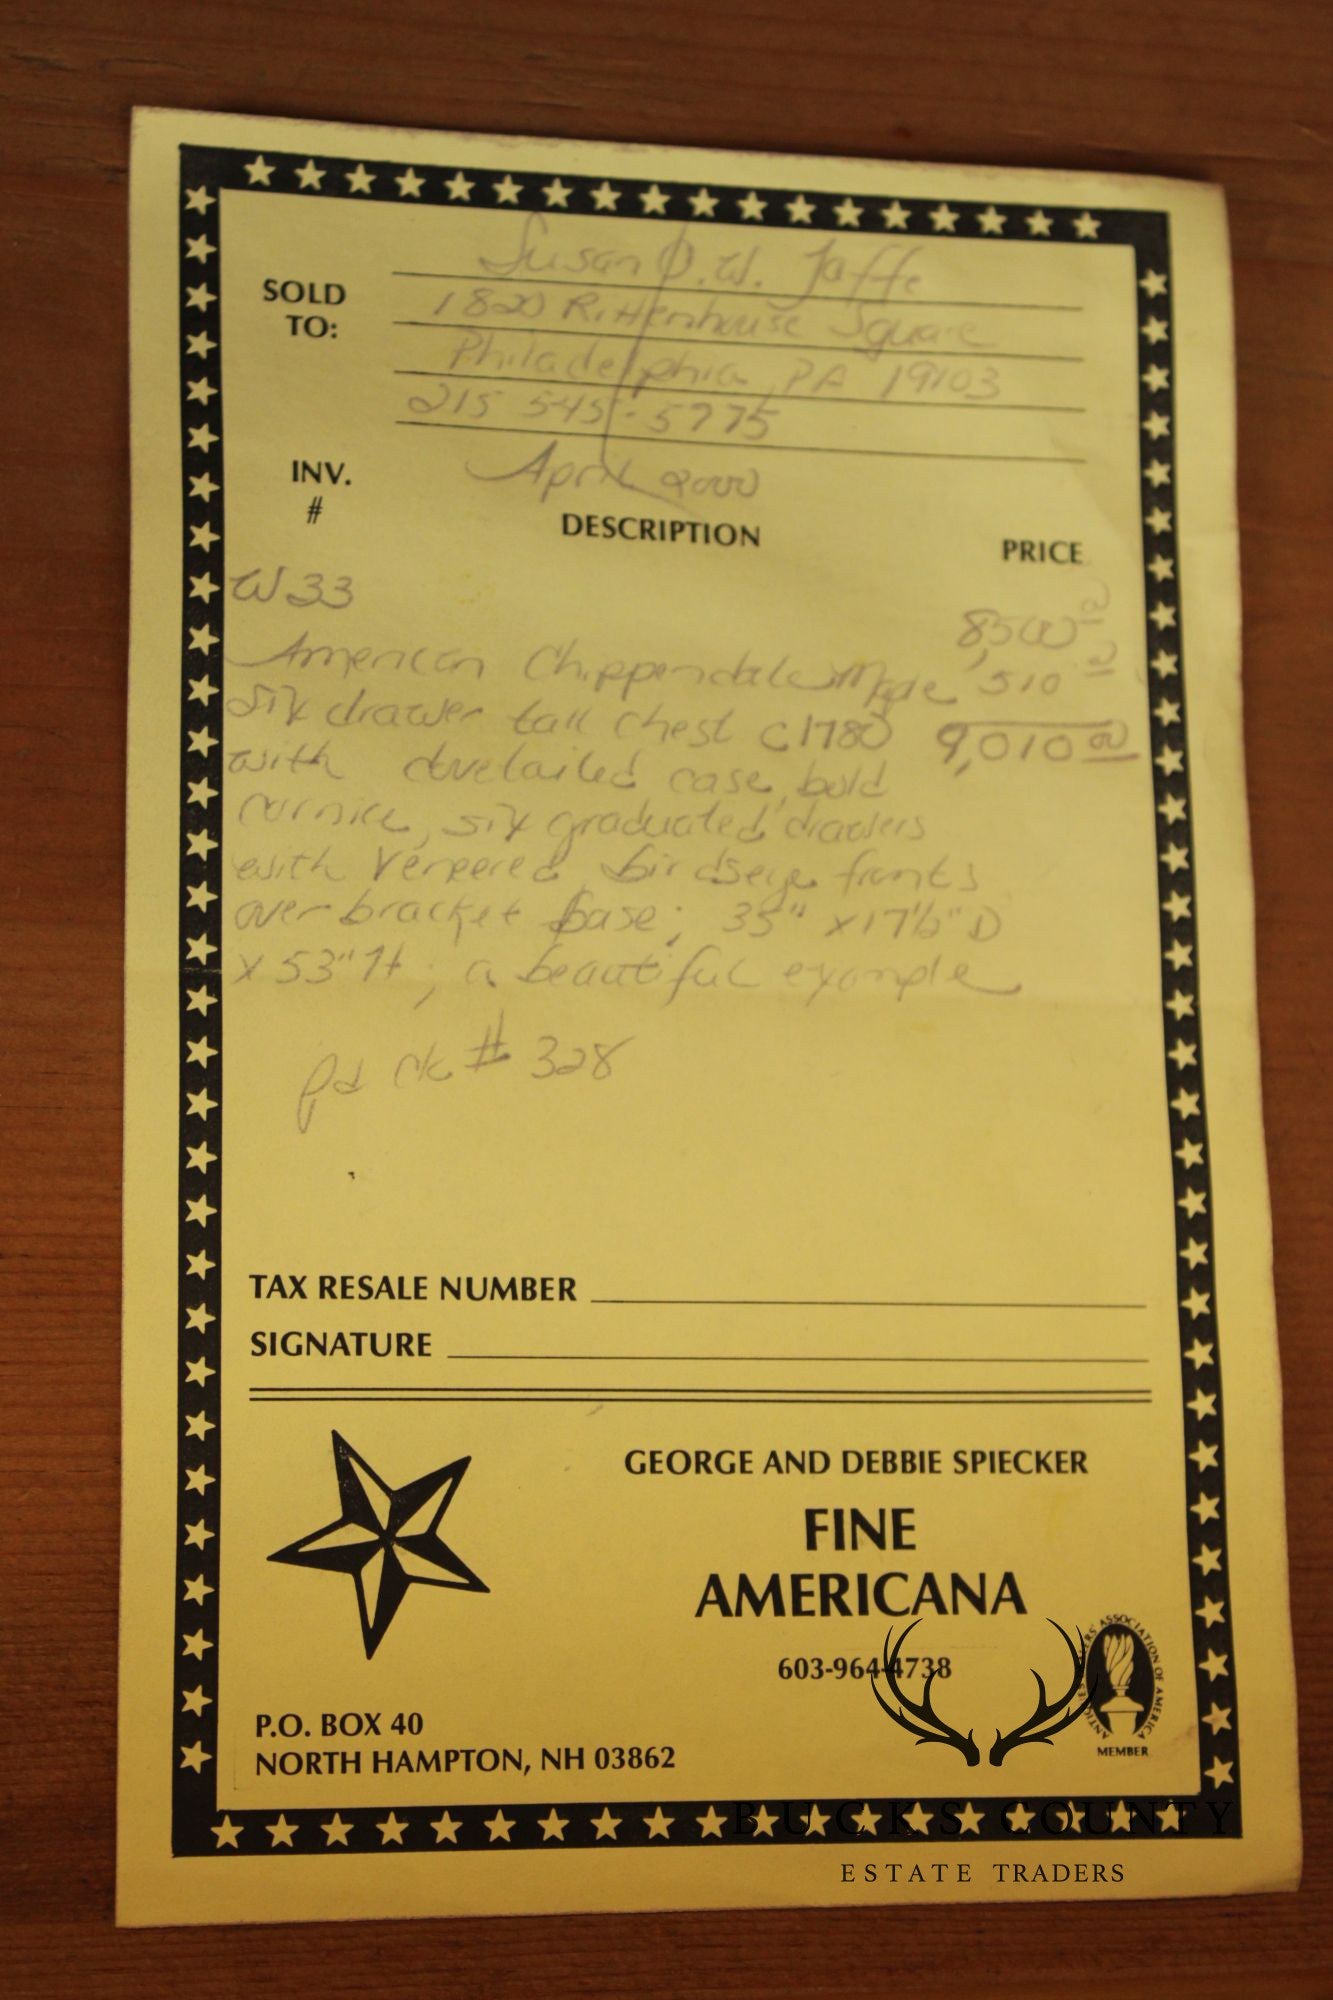 Susan W. Jaffe
SOLD TO:
1820 Rittenhouse Square
Philadelphia, PA 19103
215 545-5775
INV. #
April 2000
DESCRIPTION
PRICE
W33
8,500 00
American Chippendale Maple 510 00
Six drawer tall chest c1780 9,010 00
with dovetailed case, bold
cornice, six graduated drawers
with veneered birdseye fronts
over bracket base; 35" x 17½" D
x 53" H; a beautiful example
pd ck # 328
TAX RESALE NUMBER
SIGNATURE
GEORGE AND DEBBIE SPIECKER
FINE
AMERICANA
603-964-4738
P.O. BOX 40
NORTH HAMPTON, NH 03862
ANTIQUES DEALERS' ASSOCIATION OF AMERICA
MEMBER
BUCKS COUNTY
ESTATE TRADERS